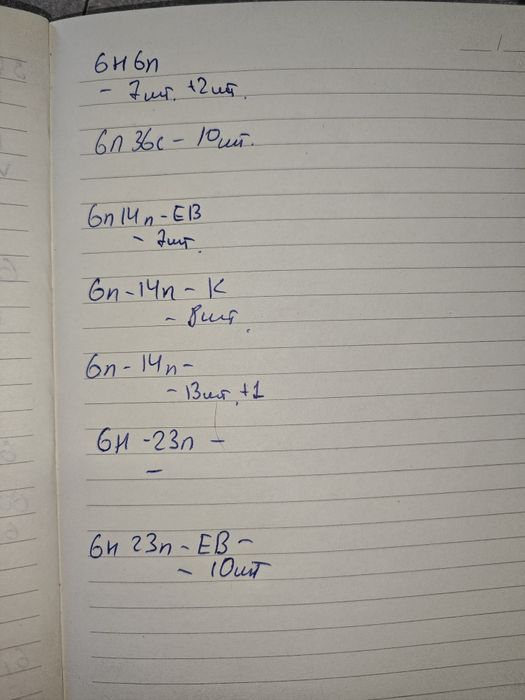 6н6п
- 7шт. +2шт.
6п 36с - 10шт.
6п14п-ЕВ
- 7шт.
6п-14п-К
- 8шт.
6п-14п-
- 13шт. +1
6Н -23п -
-
6н 23п-ЕВ-
- 10шт